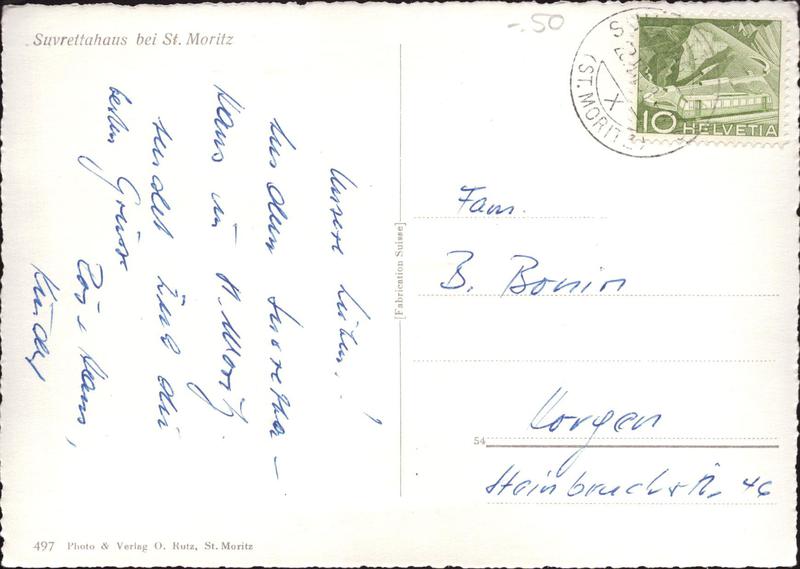 Suvrettahaus bei St. Moritz
-.50
(ST. MORITZ)
X
10 HELVETIA
Unsere Lieben!
Aus dem Suvretta-
haus in St. Moritz
sendet Euch die
besten Grüsse
Kinder
[Fabrication Suisse]
Fam.
B. Bonin
Horgen
54
Steinbruchstr. 46
497 Photo & Verlag O. Rutz, St. Moritz